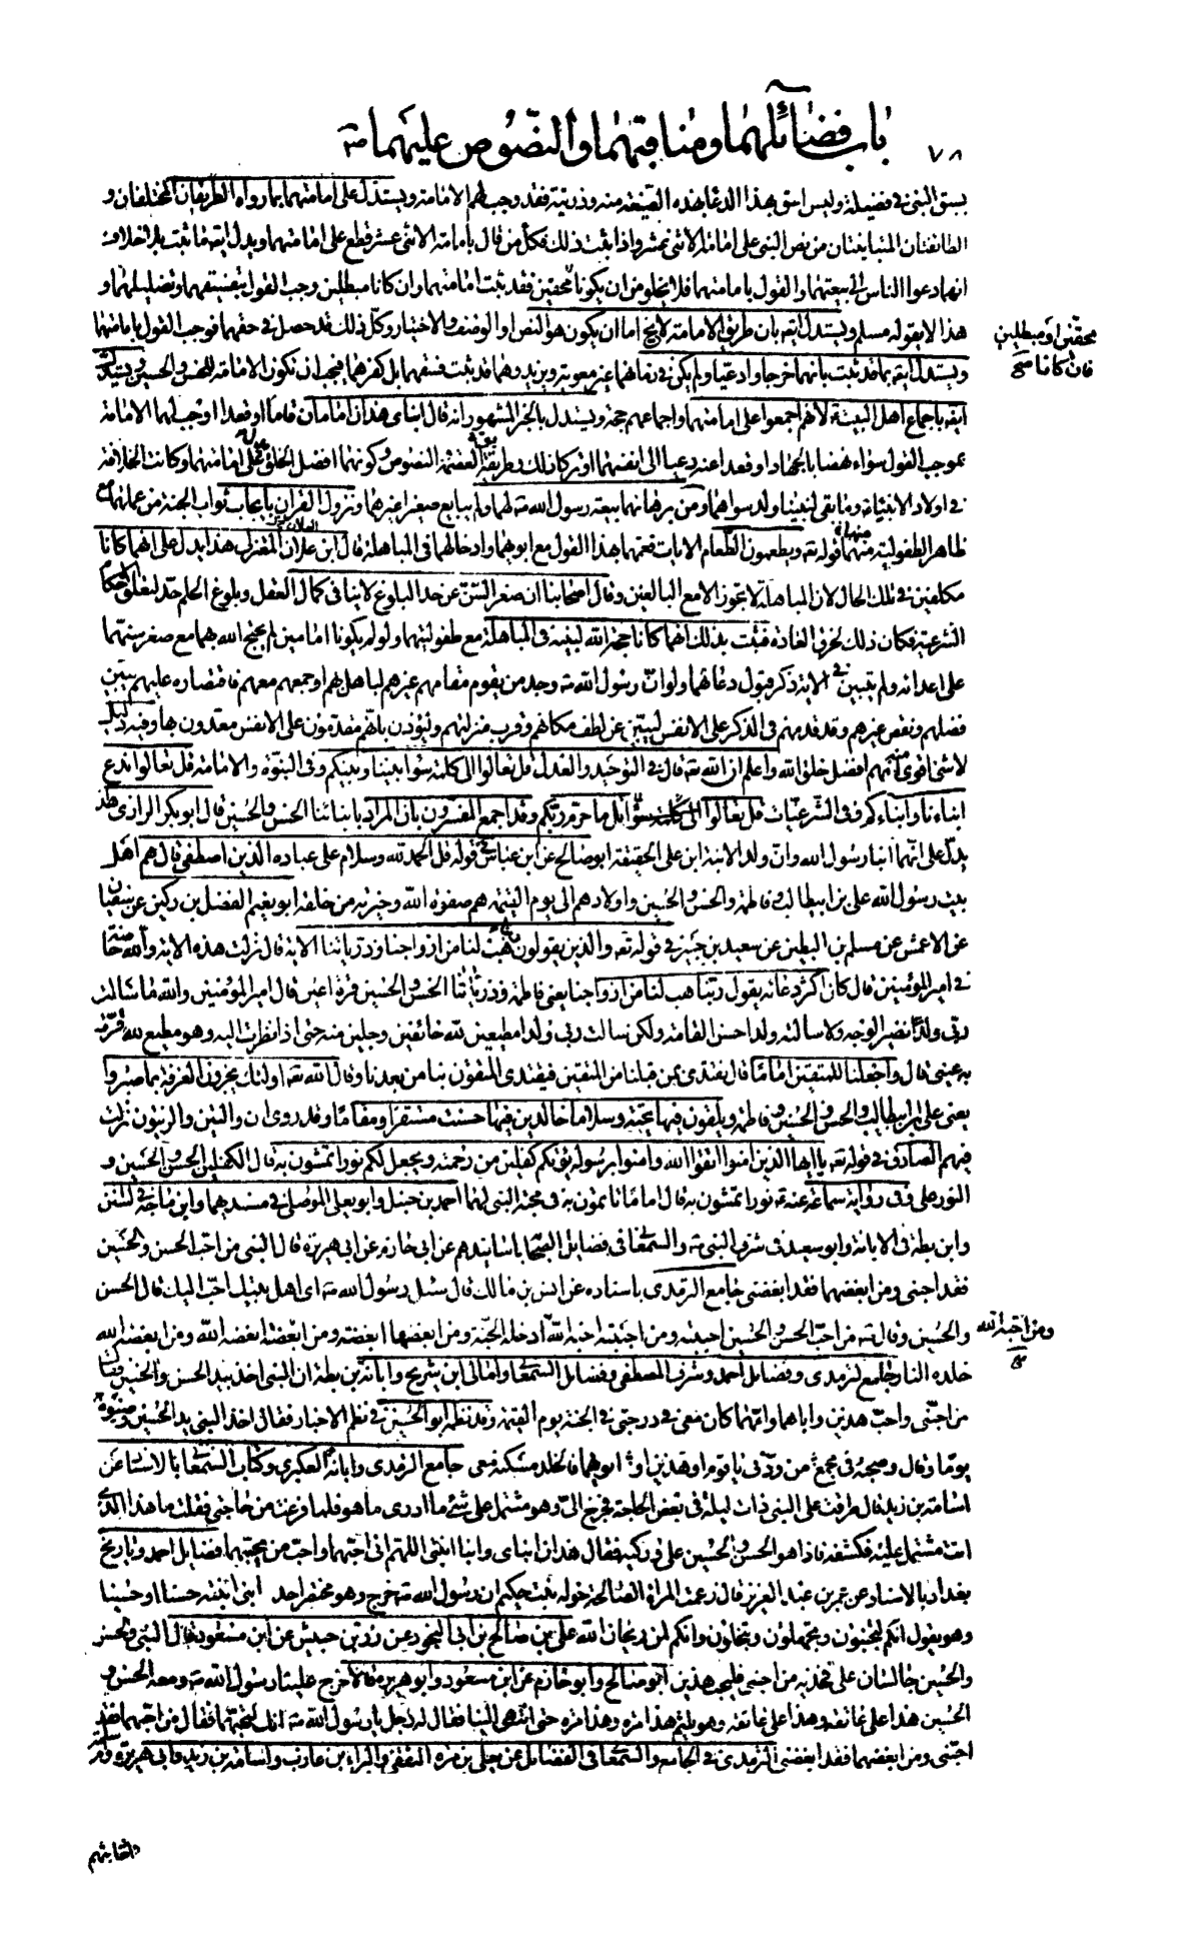 ٧٨
باب فضائلهما ومناقبهما والنصوص عليهما صلى
يسبق النبي في فضيلة وليس اسبق بهذا الدعا بهذه الصيغة منه وذريته فقد وجب لهم الامامة ويستدل على امامتهما بما رواه الطريقان المختلفان و
الطائفتان المتباينتان من نص النبي على امامة الاثنى عشر واذا ثبت ذلك فكل من قال بامامة الاثنى عشر قطع على امامتهما ويدل ايضا ما ثبت بلا خلاف
انهما دعوا الناس الى بيعتهما والقول بامامتهما فلا يخلو من ان يكونا محقين فقد ثبت امامتهما وان كانا مبطلين وجب القول بتفسيقهما وتضليلهما و
محقين او مبطلين
فان كانا صح
هذا لا يقوله مسلم ويستدل ايضا بان طريق الامامة لا يخ اما ان يكون هو النص او الوصف والاختيار وكل ذلك قد حصل في حقهما فوجب القول بامامتهما
ويستدل ايضا بما قد ثبت بانهما خرجا وادعيا ولم يكن في زمانهما غير معوية ويزيد وهما قد ثبت فسقهما بل كفرهما فيجب ان تكون الامامة للحسن والحسين ويستدل
ايضا باجماع اهل البيت لانهم اجمعوا على امامتهما واجماعهم حجة ويستدل بالخبر المشهور انه قال ابناى هذان امامان قاما او قعدا اوجب لهما الامامة
بموجب القول سواء نهضا بالجهاد او قعدا عنه دعيا الى انفسهما او تركا ذلك وطريقة العصمة والنصوص وكونهما افضل الخلق يدل على امامتهما وكانت الخلافة
في اولاد الانبياء وما بقى لنبينا ولد سواهما ومن برهانهما بيعة رسول الله لهما ولم يبايع صغيرا غيرهما ونزول القران بايجاب ثواب الجنة من عملهما مع
ظاهر الطفولية منهما قوله تع ويطعمون الطعام الايات فعمهما بهذا القول مع ابويهما وادخالهما في المباهلة قال ابن علان المعتزلي هذا يدل على انهما كانا
مكلفين في تلك الحال لان المباهلة لا تجوز الا مع البالغين وقال اصحابنا ان صغر السن عن حد البلوغ لا ينافي كمال العقل وبلوغ الحلم حد لتعلق الاحكام
الشرعية فكان ذلك لخرق العادة فثبت بذلك انهما كانا حجة الله لنبيه في المباهلة مع طفوليتهما ولو لم يكونا امامين لم يحتج الله بهما مع صغر سنهما
على اعدائه ولم يتبين في الاية ذكر قبول دعائهما ولو ان رسول الله وجد من يقوم مقامهم غيرهم لباهل بهم او جمعهم معهم فاقتصاره عليهم يبين
فضلهم ونقص غيرهم وقد قدمهم في الذكر على الانفس ليبين عن لطف مكانهم وقرب منزلتهم وليؤذن بانهم مقدمون على الانفس معدون بها وفيه دليل
لا شئ اقوى منه انهم افضل خلق الله واعلم ان الله تع قال في التوحيد والعدل قل تعالوا الى كلمة سواء بيننا وبينكم وفي النبوة والامامة قل تعالوا ندع
ابناءنا وابناءكم وفي الشرعيات قل تعالوا اتل ما حرم ربكم وقد اجمع المفسرون بان المراد بابنائنا الحسن والحسين قال ابو بكر الرازى هذا
يدل على انهما ابنا رسول الله وان ولد الابنة ابن على الحقيقة ابو صالح عن ابن عباس في قوله قل الحمد لله وسلام على عباده الذين اصطفى قال هم اهل
بيت رسول الله على بن ابيطالب وفاطمة والحسن والحسين واولادهم الى يوم القيمة هم صفوة الله وخيرته من خلقه ابو نعيم الفضل بن دكين عن سفيان
عن الاعمش عن مسلم بن البطين عن سعيد بن جبير في قوله تع والذين يقولون هب لنا من ازواجنا وذرياتنا الاية قال نزلت هذه الاية والله خاصة
في امير المؤمنين قال كان اكثر دعائه يقول ربنا هب لنا من ازواجنا يعني فاطمة وذرياتنا الحسن والحسين قرة اعين قال امير المؤمنين والله ما سالت
ربى ولدا نضير الوجه ولا سالته ولدا حسن القامة ولكن سالت ربى ولدا مطيعين لله خائفين وجلين منه حتى اذا نظرت اليه وهو مطيع لله قرت
به عينى قال واجعلنا للمتقين اماما قال نقتدى بمن قبلنا من المتقين فيقتدى المتقون بنا من بعدنا وقال الله تع اولئك يجزون الغرفة بما صبروا
يعنى على بن ابيطالب والحسن والحسين وفاطمة ويلقون فيها تحية وسلاما خالدين فيها حسنت مستقرا ومقاما وقد روى ان والتين والزيتون نزلت
فيهم الصادق في قوله تع يا ايها الذين امنوا اتقوا الله وامنوا برسوله يؤتكم كفلين من رحمته ويجعل لكم نورا تمشون به قال الكفلين الحسن والحسين و
النور على وفي رواية سماعة عنه نورا تمشون به قال اماما تاتمون به في محبة النبي لهما احمد بن حنبل وابو يعلى الموصلى في مسنديهما وابن ماجة في السنن
وابن بطة في الابانة وابو سعيد في شرف النبي والسمعانى في فضايل الصحابة باسانيدهم عن ابى حازم عن ابى هريرة قال النبي من احب الحسن والحسين
فقد احبنى ومن ابغضهما فقد ابغضنى جامع الترمذى باسناده عن انس بن مالك قال سئل رسول الله اى اهل بيتك احب اليك قال الحسن
والحسين وقال من احب الحسن والحسين احببته ومن احببته احبه الله ادخله الجنة ومن ابغضهما ابغضته ومن ابغضته ابغضه الله ومن ابغضه الله
ومن احبه الله
صح
خلده النار جامع الترمذى وفضائل احمد وشرف المصطفى وفضايل السمعانى وامالى ابن شريح وابانة بن بطة ان النبي اخذ بيد الحسن والحسين وقال
من احبنى واحب هذين واباهما وامهما كان معى في درجتى في الجنة يوم القيمة وقد نظمه ابو الحسين في نظم الاخبار فقال اخذ النبي يد الحسين وصنوه
يوما وقال وصحبه في مجمع من ودنى يا قوم او هذين او ابويهما فالخلد مسكنه معى جامع الترمذى وابانة العكبرى وكتاب السمعانى بالاسناد عن
اسامة بن زيد قال طرقت على النبي ذات ليلة في بعض الحاجة فخرج الى وهو مشتمل على شئ ما ادرى ما هو فلما فرغت من حاجتى فقلت ما هذا الذى
انت مشتمل عليه فكشفه فاذا هو الحسن والحسين على وركيه فقال هذان ابناى وابنا ابنتى اللهم انى احبهما واحب من يحبهما فضايل احمد وتاريخ
بغداد بالاسناد عن عمر بن عبد العزيز قال زعمت المراة الصالحة خولة بنت حكيم ان رسول الله خرج وهو محتضن احد ابنى ابنته حسنا او حسينا
وهو يقول انكم لتجبنون وتجهلون وتبخلون وانكم لمن ريحان الله على بن صالح بن ابى النجود عن زر بن حبيش عن ابن مسعود قال النبي والحسن
والحسين جالسان على فخذيه من احبنى فليحب هذين ابو صالح وابو حازم عن ابن مسعود وابو هريرة قالا خرج علينا رسول الله ومعه الحسن و
الحسين هذا على عاتقه وهذا على عاتقه وهو يلثم هذا مرة وهذا مرة حتى انتهى الينا فقال له رجل يا رسول الله انك لتحبهما فقال من احبهما فقد
احبنى ومن ابغضهما فقد ابغضنى الترمذى في الجامع والسمعانى في الفضائل عن يعلى بن مرة الثقفى والبراء بن عازب واسامة بن زيد وابى هريرة وام